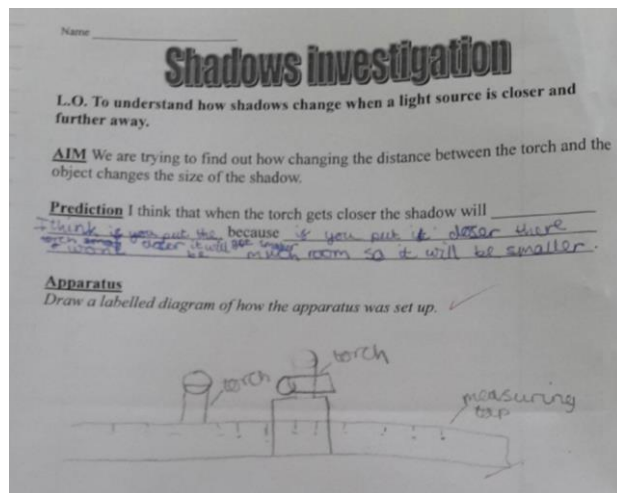 Name
Shadows investigation
L.O. To understand how shadows change when a light source is closer and
further away.
AIM We are trying to find out how changing the distance between the torch and the
object changes the size of the shadow.
Prediction I think that when the torch gets closer the shadow will
I think if you put the because if you put it closer there
wont closer it will be much room so it will be smaller.
Apparatus
Draw a labelled diagram of how the apparatus was set up.
torch
torch
measuring
tap